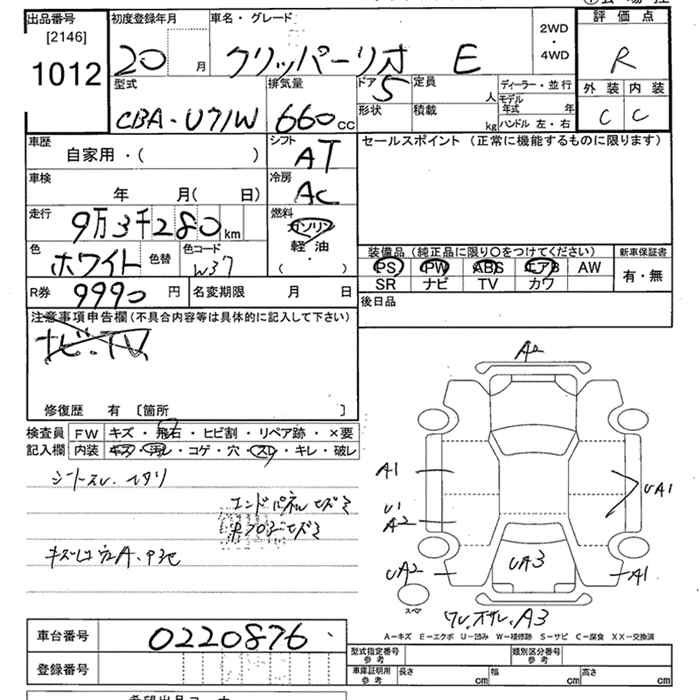 出品番号
[2146]
1012
初度登録年月
20 月
車名・グレード
クリッパーリオ E
2WD
・
4WD
評価点
R
外装 内装
C C
型式
CBA-U71W
排気量
660 CC
ドア 5
定員 人
形状
積載 kg
ディーラー・並行
モデル年式 年
ハンドル 左・右
車歴
自家用・( )
シフト
AT
車検
年 月( 日)
冷房
AC
走行
9万3千280 km
燃料
ガソリン
軽油
( )
色
ホワイト
色替
色コード
W37
R券 9990 円
名変期限 月 日
セールスポイント (正常に機能するものに限ります)
装備品 (純正品に限り〇をつけてください)
PS PW ABS エアB AW
SR ナビ TV カワ
新車保証書
有・無
後日品
注意事項申告欄(不具合内容等は具体的に記入して下さい)
ナビ・TV
修復歴 有 〔箇所 〕
検査員記入欄
FW キズ・飛石・ヒビ割・リペア跡・×要
内装 キズ・汚レ・コゲ・穴・スレ・キレ・破レ
シートスレ・ヘタリ
エンドパネル
A2
A1
U1
A2
UA2
UA1
UA3
A1
スペア
A3
A-キズ E-エクボ U-凹み W-補修跡 S-サビ C-腐食 XX-交換済
車台番号 0220876
登録番号
型式指定番号 参考
類別区分番号 参考
車庫証明用 参考
長さ cm
幅 cm
高さ cm
希望出品コーナー